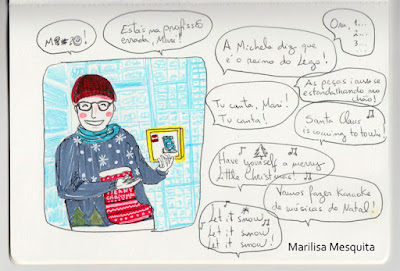 M@#?@!
Estás na profissão
errada, Mari!
A Michela diz que
é o reino do Lego!
Ora, 1...
2...
3...
As peças
se
no
chão!
Tu canta, Mari!
Tu canta!
Santa Claus
is coming to town
Have yourself a merry
little Christmas!
Vamos fazer karaoke
de músicas do Natal!
Let it snow
Let it snow
Let it snow!
Marilisa Mesquita